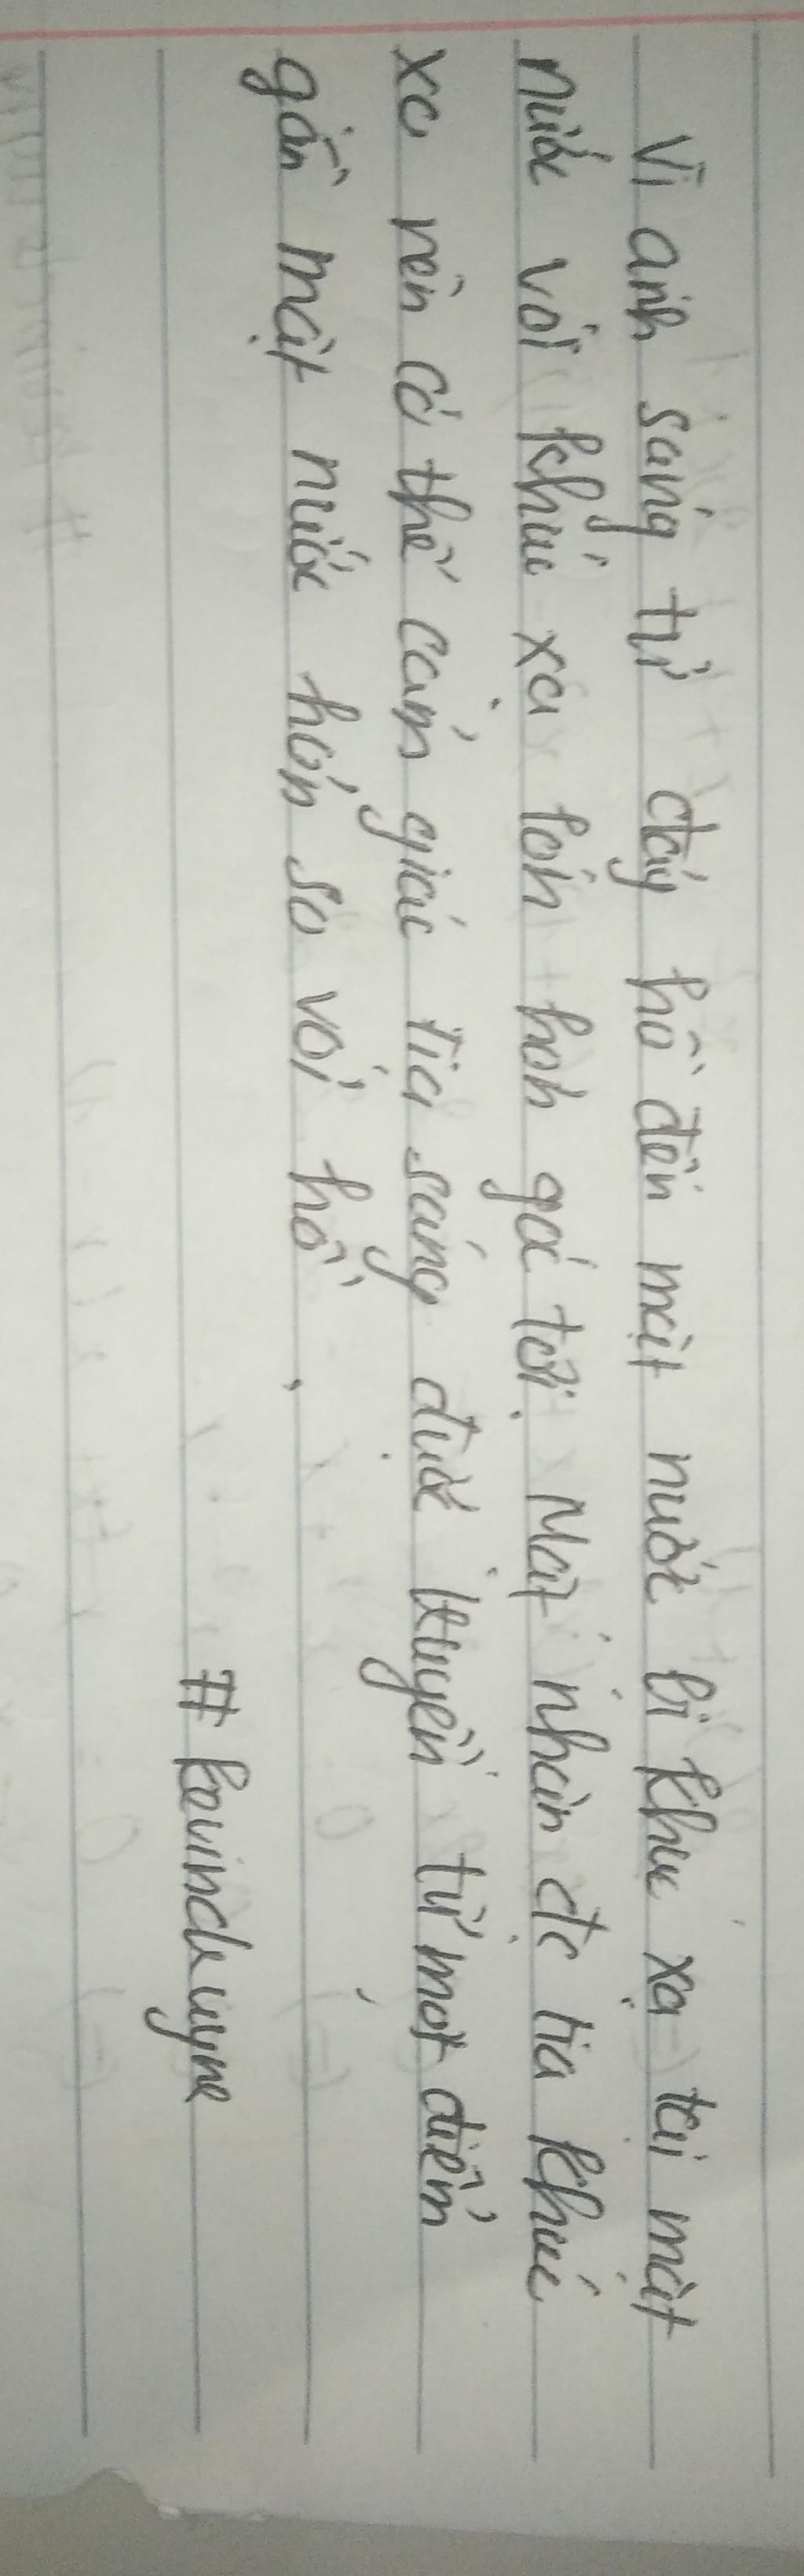 Vì ánh sáng từ đáy hồ đến mặt nước bị khúc xạ tại mặt
nước với khúc xạ lớn hơn góc tới. Mắt nhận đc tia khúc
xạ nên có thể cảm giác tia sáng được truyền từ một điểm
gần mặt nước hơn so với hồ.
# kevinduyne